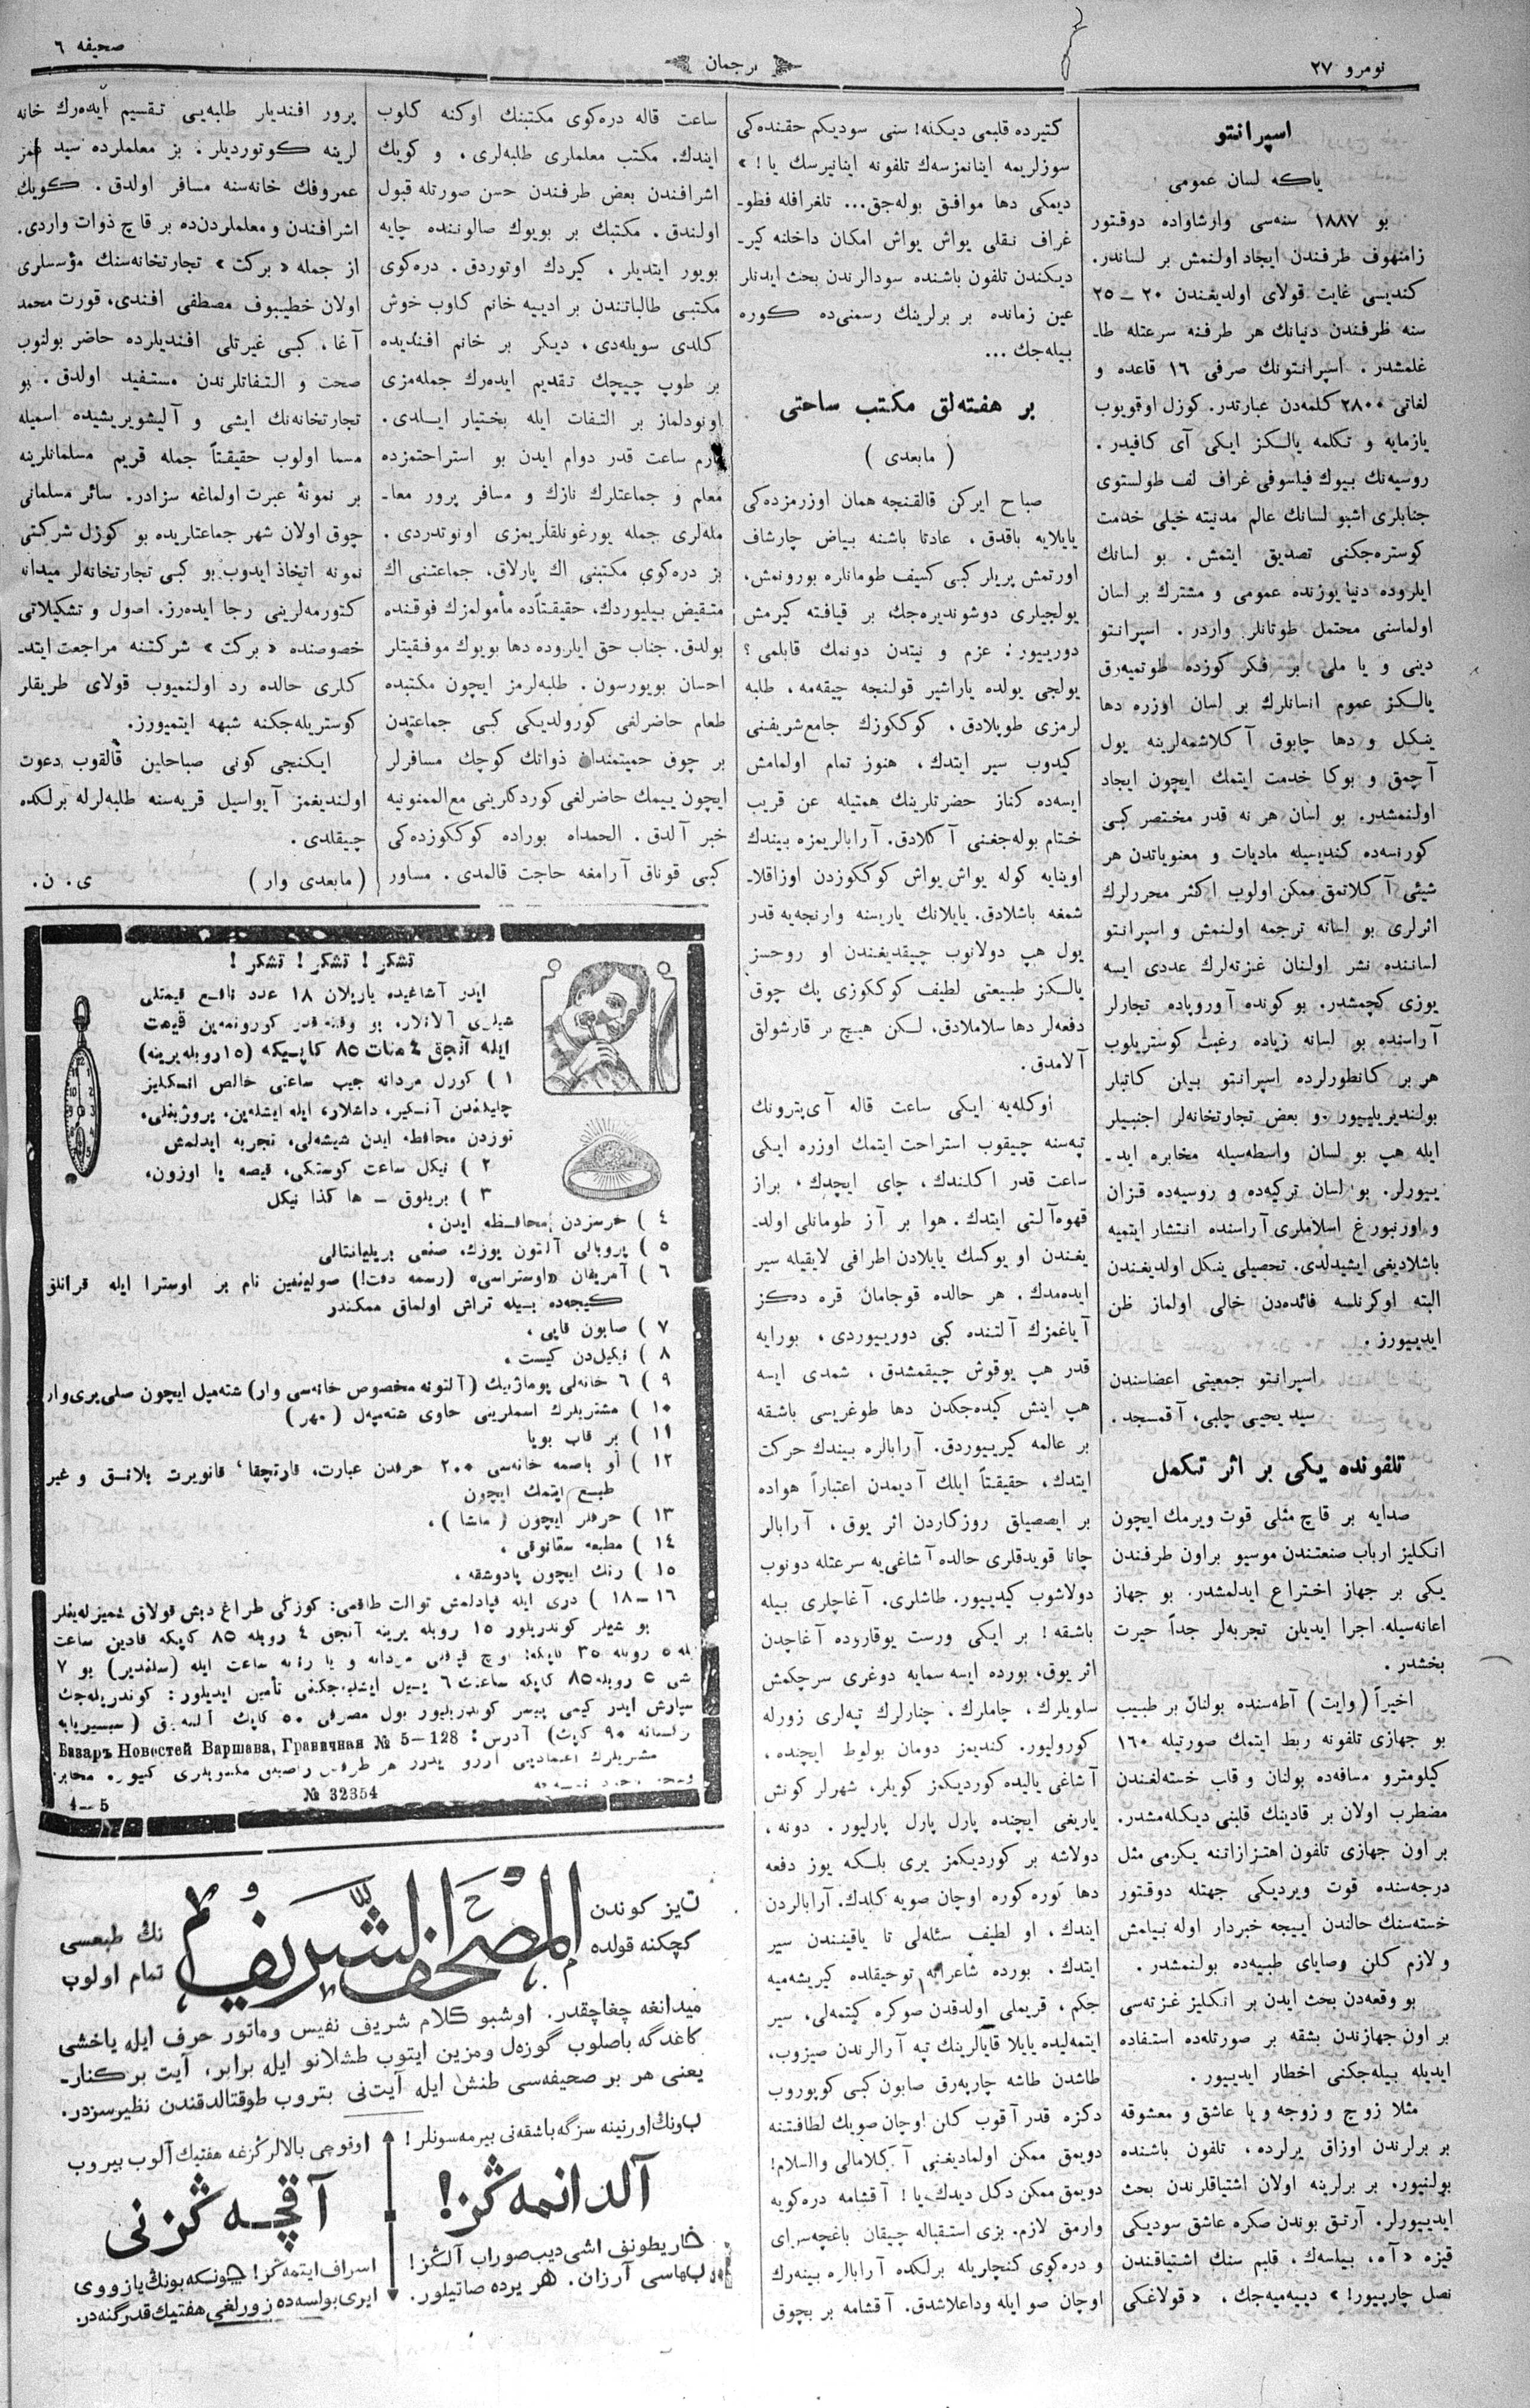 نومرو ٢٧
ترجمان
صحیفه ٦
اسپرانتو
یاکه لسان عمومی
بو ١٨٨٧ سنه‌سی وارشاواده دوقتور
زامنهوف طرفندن ایجاد اولنمش بر لساندر.
کندیسی غایت قولای اولدیغندن ٢٠ – ٢٥
سنه ظرفندن دنیانك هر طرفنه سرعتله طا-
غلمشدر. اسپرانتونك صرفی ١٦ قاعده و
لغاتی ٢٨٠٠ کلمه‌دن عبارتدر. کوزل اوقویوب
یازمایه و تکلمه یالکز ایکی آی کافیدر.
روسیه‌نك بیوك فیلسوفی غراف لف طولستوی
جنابلری اشبو لسانك عالم مدنیته خیلی خدمت
کوستره‌جکنی تصدیق ایتمش. بو لسانك
ایلروده دنیا یوزنده عمومی و مشترك بر لسان
اولماسنی محتمل طوتانلر واردر. اسپرانتو
دینی و یا ملی بر فکر کوزده طوتمیه‌رق
یالکز عموم انسانلرك بر لسان اوزره دها
ینکل و دها چابوق آکلاشمه‌لرینه یول
آچمق و بوکا خدمت ایتمك ایچون ایجاد
اولنمشدر. بو لسان هر نه قدر مختصر کبی
کورنسه‌ده کندیسیله مادیات و معنویاتدن هر
شیئی آکلاتمق ممکن اولوب اکثر محررلرك
اثرلری بو لسانه ترجمه اولنمش و اسپرانتو
لساننده نشر اولنان غزته‌لرك عددی ایسه
یوزی کچمشدر. بو کونده آوروپاده تجارلر
آراسنده بو لسانه زیاده رغبت کوستریلوب
هر بر کانطورلرده اسپرانتو بیلن کاتبلر
بولندیریلییور و بعض تجارتخانه‌لر اجنبیلر
ایله هپ بو لسان واسطه‌سیله مخابره اید-
ییورلر. بو لسان ترکیه‌ده و روسیه‌ده قزان
و اورنبورغ اسلاملری آراسنده انتشار ایتمیه
باشلادیغی ایشیدلدی. تحصیلی ینکل اولدیغندن
البته اوکرنلسه فائده‌دن خالی اولماز ظن
ایدییورز.
اسپرانتو جمعیتی اعضاسندن
سید یحیی چلبی، آقمسجد.
تلفونده یکی بر اثر تکمل
صدایه بر قاچ مثلی قوت ویرمك ایچون
انکلیز ارباب صنعتندن موسیو براون طرفندن
یکی بر جهاز اختراع ایدلمشدر. بو جهاز
اعانه‌سیله اجرا ایدیلن تجربه‌لر جداً حیرت
بخشدر.
اخیراً (وایت) آطه‌سنده بولنان بر طبیب
بو جهازی تلفونه ربط ایتمك صورتیله ١٦٠
کیلومترو مسافه‌ده بولنان و قلب خسته‌لغندن
مضطرب اولان بر قادینك قلبنی دیکله‌مشدر.
براون جهازی تلفون اهتزازاتنه یکرمی مثل
درجه‌سنده قوت ویردیکی جهتله دوقتور
خسته‌سنك حالندن اییجه خبردار اوله بیلمش
و لازم کلن وصایای طبیه‌ده بولنمشدر.
بو وقعه‌دن بحث ایدن بر انکلیز غزته‌سی
براون جهازندن بشقه بر صورتله‌ده استفاده
ایدیله بیله‌جکنی اخطار ایدییور.
مثلا زوج و زوجه و یا عاشق و معشوقه
بر برلرندن اوزاق یرلرده، تلفون باشنده
بولنیور. بر برلرینه اولان اشتیاقلرندن بحث
ایدییورلر. آرتق بوندن صکره عاشق سودیکی
قیزه «آه، بیلسه‌ك، قلبم سنك اشتیاقندن
نصل چارپییور!» دییه‌میه‌جك، «قولاغکی
کتیرده قلبمی دیکله! سنی سودیکم حقنده‌کی
سوزلریمه اینانمزسه‌ك تلفونه اینانیرسك یا!»
دیمکی دها موافق بوله‌جق... تلغرافله فطو-
غراف نقلی یواش یواش امکان داخلنه کیر-
دیکندن تلفون باشنده سودالرندن بحث ایدنلر
عین زمانده بر برلرینك رسمنی‌ده کوره
بیله‌جك...
بر هفته‌لق مکتب ساحتی
(مابعدی)
صباح ایرکن قالقنجه همان اوزرمزده‌کی
یایلایه باقدق، عادتا باشنه بیاض چارشاف
اورتمش پریلر کبی کسیف طومانلره بورونمش،
یولجیلری دوشوندیره‌جك بر قیافته کیرمش
دورییور: عزم و نیتدن دونمك قابلمی؟
یولجی یولده یاراشیر قولنجه چیقه‌مه، طلبه
لرمزی طوپلادق، کوککوزك جامع شریفنی
کیدوب سیر ایتدك، هنوز تمام اولمامش
ایسه‌ده کناز حضرتلرینك همتیله عن قریب
ختام بوله‌جغنی آکلادق. آرابالریمزه بیندك
اوینایه کوله یواش یواش کوککوزدن اوزاقلا-
شمغه باشلادق. یایلانك یاریسنه وارنجه‌یه قدر
یول هپ دولانوب چیقدیغندن او روحسز
یالکز طبیعتی لطیف کوککوزی پك چوق
دفعه‌لر دها سلاملادق، لکن هیچ بر قارشولق
آلامدق.
اوکله‌یه ایکی ساعت قاله آی‌پترونك
تپه‌سنه چیقوب استراحت ایتمك اوزره ایکی
ساعت قدر اکلندك، چای ایچدك، براز
قهوه‌آلتی ایتدك. هوا بر آز طومانلی اولد-
یغندن او یوکسك یایلادن اطرافی لایقیله سیر
ایده‌مدك. هر حالده قوجامان قره دکز
آیاغمزك آلتنده کبی دورییوردی، بورایه
قدر هپ یوقوش چیقمشدق، شمدی ایسه
هپ اینش کیده‌جکدن دها طوغریسی باشقه
بر عالمه کیرییوردق. آرابالره بیندك حرکت
ایتدك، حقیقتاً ایلك آدیمدن اعتباراً هواده
بر ایصصیلق روزکاردن اثر یوق، آرابالر
چانا قویدقلری حالده آشاغی‌یه سرعتله دونوب
دولاشوب کیدییور. طاشلری، آغاچلری بیله
باشقه! بر ایکی ورست یوقاروده آغاچدن
اثر یوق، بورده ایسه سمایه دوغری سرچکمش
سلویلرك، چاملرك، چنارلرك تپه‌لری زورله
کورولیور. کندیمز دومان بولوط ایچنده،
آشاغی یالیده کوردیکمز کویلر، شهرلر کونش
یاریغی ایچنده پارل پارل پارلیور. دونه،
دولاشه بر کوردیکمز یری بلکه یوز دفعه
دها کوره کوره اوچان صویه کلدك. آرابالردن
ایندك، او لطیف شلاله‌یی تا یاقیندن سیر
ایتدك. بورده شاعرانه توحیقلده کیریشه‌میه
جکم، قریملی اولدقدن صوکره کیتمه‌لی، سیر
ایتمه‌لیده یایلا قایالرینك تپه آرالرندن صیزوب،
طاشدن طاشه چارپه‌رق صابون کبی کوپوروب
دکزه قدر آقوب کلن اوچان صویك لطافتنه
دویمق ممکن اولمادیغنی آکلامالی والسلام!
دویمق ممکن دکل دیدك یا! آقشامه دره‌کویه
وارمق لازم. بزی استقباله چیقان باغچه‌سرای
و دره‌کوی کنجلریله برلکده آرابالره بینه‌رك
اوچان صو ایله وداعلاشدق. آقشامه بر بچوق
ساعت قاله دره‌کوی مکتبنك اوکنه کلوب
ایندك. مکتب معلملری طلبه‌لری، و کویك
اشرافندن بعض طرفندن حسن صورتله قبول
اولندق. مکتبك بر بویوك صالوننده چایه
بویور ایتدیلر، کیردك اوتوردق. دره‌کوی
مکتبی طالباتندن بر ادیبه خانم کلوب خوش
کلدی سویله‌دی، دیکر بر خانم افندیده
بر طوپ چیچك تقدیم ایده‌رك جمله‌مزی
اونودلماز بر التفات ایله بختیار ایلدی.
یارم ساعت قدر دوام ایدن بو استراحتمزده
معلم و جماعتلرك نازك و مسافر پرور معا-
مله‌لری جمله یورغونلقلریمزی اونوتدردی.
بز دره‌کوی مکتبنی اك پارلاق، جماعتنی اك
متیقض بیلییوردك، حقیقتاًده مأمولمزك فوقنده
بولدق. جناب حق ایلروده دها بویوك موفقیتلر
احسان بویورسون. طلبه‌لرمز ایچون مکتبده
طعام حاضرلغی کورولدیکی کبی جماعتدن
بر چوق حمیتمندان ذواتك کوچك مسافرلر
ایچون ییمك حاضرلغی کوردکلرینی مع‌الممنونیه
خبر آلدق. الحمدالله بوراده کوککوزده‌کی
کبی قوناق آرامغه حاجت قالمدی. مساور
پرور افندیلر طلبه‌یی تقسیم ایده‌رك خانه
لرینه کوتوردیلر: بز معلملرده سید
عمروفك خانه‌سنه مسافر اولدق. کویك
اشرافندن و معلملردن‌ده بر قاچ ذوات واردی.
از جمله «برکت» تجارتخانه‌سنك مؤسسلری
اولان خطیبوف مصطفی افندی، قورت محمد
آغا، کبی غیرتلی افندیلرده حاضر بولنوب
صحت و التفاتلرندن مستفید اولدق. بو
تجارتخانه‌نك ایشی و آلیشویریشیده اسمیله
مسما اولوب حقیقتاً جمله قریم مسلمانلرینه
بر نمونۀ عبرت اولماغه سزادر. سائر مسلمانی
چوق اولان شهر جماعتلریده بو کوزل شرکتی
نمونه اتخاذ ایدوب بو کبی تجارتخانه‌لر میدانه
کتورمه‌لرینی رجا ایده‌رز. اصول و تشکیلاتی
خصوصنده «برکت» شرکتنه مراجعت ایتد-
کلری حالده رد اولنمیوب قولای طریقلر
کوستریله‌جکنه شبهه ایتمیورز.
ایکنجی کونی صباحلین قالقوب دعوت
اولندیغمز آیواسیل قریه‌سنه طلبه‌لرله برلکده
چیقلدی.
(مابعدی وار) ی. ن.
تشکر! تشکر! تشکر!
ایدر آشاغیده یازیلان ١٨ عدد نافع قیمتلی
شیلری آلانلار. بو وقته‌قدر کورونمه‌ین قیمت
ایله آنجق ٤ منات ٨٥ کاپیکه (١٥ روبله یرینه)
١) کوزل مردانه جیب ساعتی خالص انکلیز
چلیکندن آنکیر، داشلار، ایله ایشله‌ین. پروژیغلی،
توزدن محافظه ایدن شیشه‌لی، تجربه ایدلمش
٢) نیکل ساعت کوستکی، قیصه یا اوزون.
٣) بریلوق – ها کذا نیکل
٤) خرسزدن محافظه ایدن.
٥) پروبالی آلتون یوزك صنعی بریلیانتالی
٦) آمریقان «اوستراسی» (رسمه دقت!) صولینغین نام بر اوسترا ایله قرانلق
کیجه‌ده بیله تراش اولماق ممکندر
٧) صابون قابی.
٨) نیکیل‌دن کیست.
٩) ٦ خانه‌لی پوماژنیك (آلتونه مخصوص خانه‌سی وار) شته‌مپل ایچون صلی یری وار
١٠) مشتریلرك اسملرینی حاوی شته‌مپل (مهر)
١١) بر قاب بویا
١٢) أو باصمه خانه‌سی ٢٠٠ حرفدن عبارت، قارتچقا، قانویرت بلانق و غیر
طبع ایتمك ایچون
١٣) حرفلر ایچون (ماشا).
١٤) مطبعه سقانوقی.
١٥) رنك ایچون پادوشقه.
١٦–١٨) دری ایله قپادلمش توالت طاقمی: کوزکی طراغ دیش قولاق تمیزله‌یغلر
بو شیلر کوندریلور ١٥ روبله یرینه آنجق ٤ روبله ٨٥ کاپیکه قادین ساعت
Базаръ Новостей Варшава, Граничная № 5–128
№ 32354
4–5
تیز کوندن
کچکنه قولده
المصحف الشریف
نڭ طبعسی
تمام اولوب
میدانغه چغاچقدر. اوشبو کلام شریف نفیس وماتور حرف ایله یاخشی
کاغدگه باصلوب گوزه‌ل ومزین ایتوب طشلانو ایله برابر، آیت برکنار-
یعنی هر بر صحیفه‌سی طنش ایله آیت‌نی بتروب طوقتالدقندن نظیرسزدر.
بونڭ اورنینه سزگه باشقه‌نی بیرمه‌سونلر!
آلدانمه‌ڭز!
خاریطونف اشی دیب صوراب آلڭز!
بهاسی آرزان. هر یرده صاتیلور.
اوقوچی بالالرڭزغه هفتیك آلوب بیروب
آقچه‌ڭزنی
اسراف ایتمه‌ڭز! چونکه بونڭ یازووی
ایری بولسه‌ده زورلغی هفتیك قدرگنه‌در.